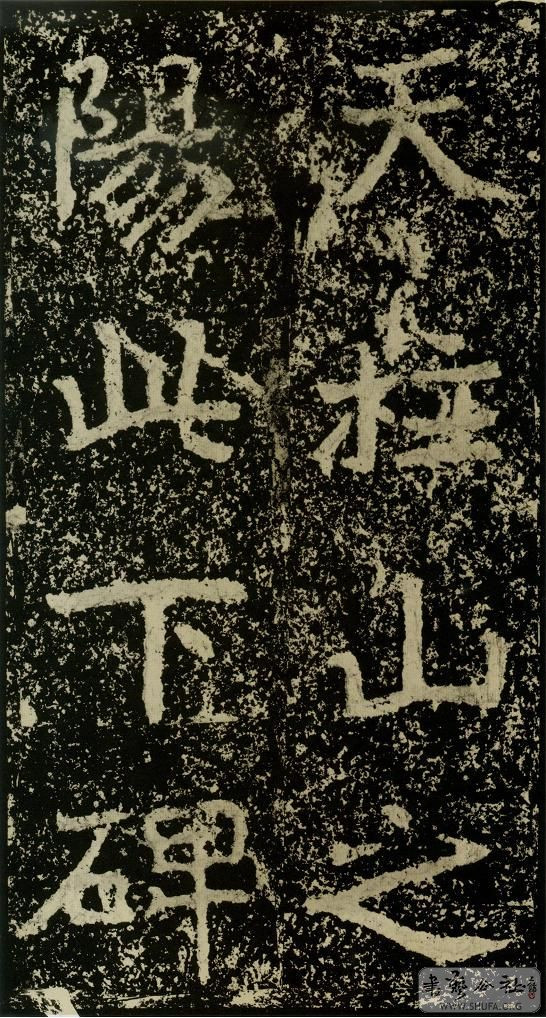 天柱山之
陽此下碑
書艺公社
WWW.SHUFA.ORG